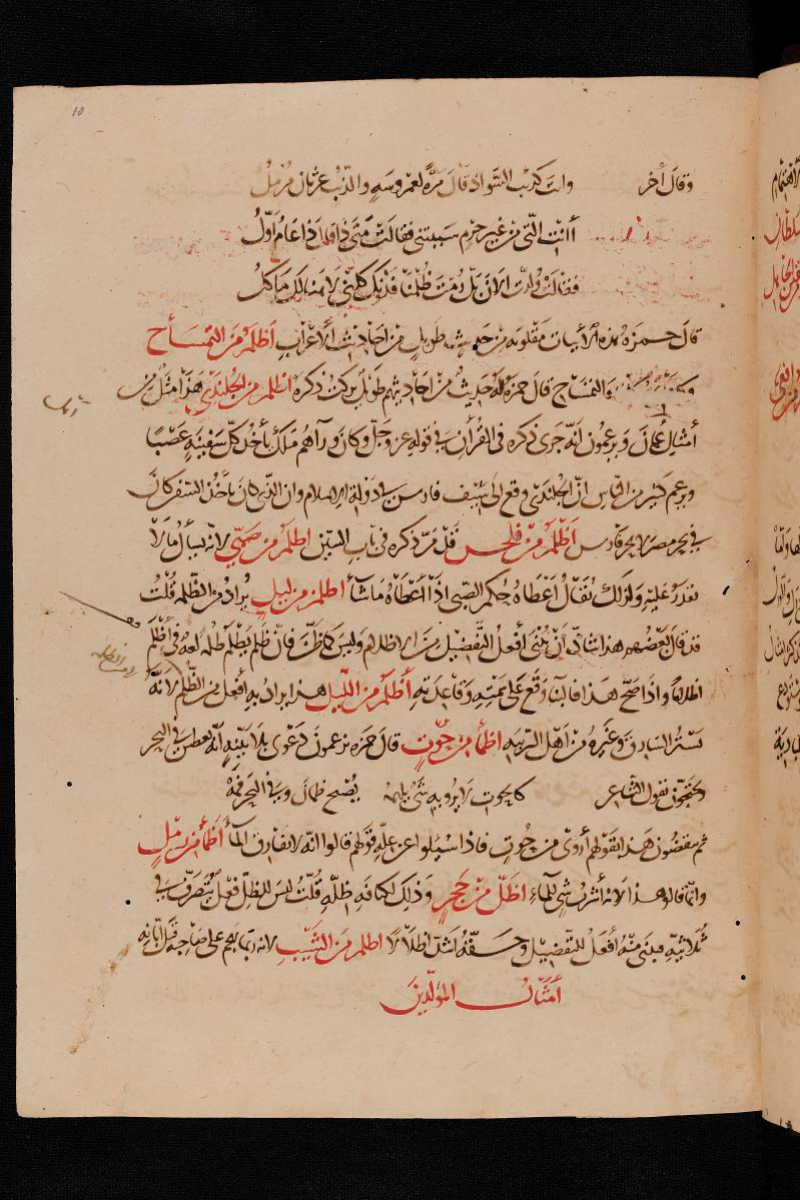 10
وقال آخر وانت كذئب السواذ قال مرة لعمروسة والذئب غرثان مرمل
أانت التي من غير جرم سببتني فقالت متى ذا قال ذا عام أول
فقالت ولدت الان بل رمت ظلمنا فدونك كلني لا هنا لك مأكل
قال حمزة هذه الأبيات منقولة من حديث طويل من احاديث الأعراب أظلم من التمساح
والتمساح قال حمزة له حديث من احاديثهم طويل تركت ذكره اظلم من الجلندى هذا مثل من
أمثال عمان ويزعمون انه جرى ذكره في القرآن في قوله عز وجل وكان ورآهم ملك يأخذ كل سفينة غصبا
ويزعم كثير من الناس ان الجلندى وقع الى سيف فارس دولة الاسلام وان الذي كان يأخذ السفن كان
في بحر مصر لا بحر فارس أظلم من فلحس قد مر ذكره في باب السين اظلم من صبي لانه يسأل ما لا
يقدر عليه ولذلك يقال أعطاه حكم الصبي اذا أعطاه ما شآء اظلم من ليل يراد من الظلمة قلت
قد قال بعضهم هذا شاذ أن يبنى أفعل التفضيل من الاظلام وليس كما ظن فان ظلم يظلم ظلمة لغة في أظلم
اظلاما واذا صح هذا فالبنآ وقع على سمته وقاعدته أظلم من الليل هذا يراد به أفعل من الظلم لانه
يستر السارق وغيره من أهل الريبة اظمأ من حوت قال حمزة يزعمون دعوى بلا بينة انه يعطش في البحر
ويحتجون بقول الشاعر كالحوت لا يرويه شي يلهمه يصبح ظمآن وفي البحر فمه
ثم ينقضون هذا بقولهم أروى من حوت فاذا سئلوا عن علة قولهم قالوا انه لا يفارق المآء أظمأ من رمل
وانما قالوا هذا لانه أشرب شي للماء اظل من حجر وذلك لكثافة ظله قلت ليس للظل فعل يتصرف في
ثلاثيه فيبنى منه أفعل للتفضيل وحقه اشد اظلالا اظلم من الشيب لانه ربما يهجم على صاحبه قبل ابانه
أمثال المولدين